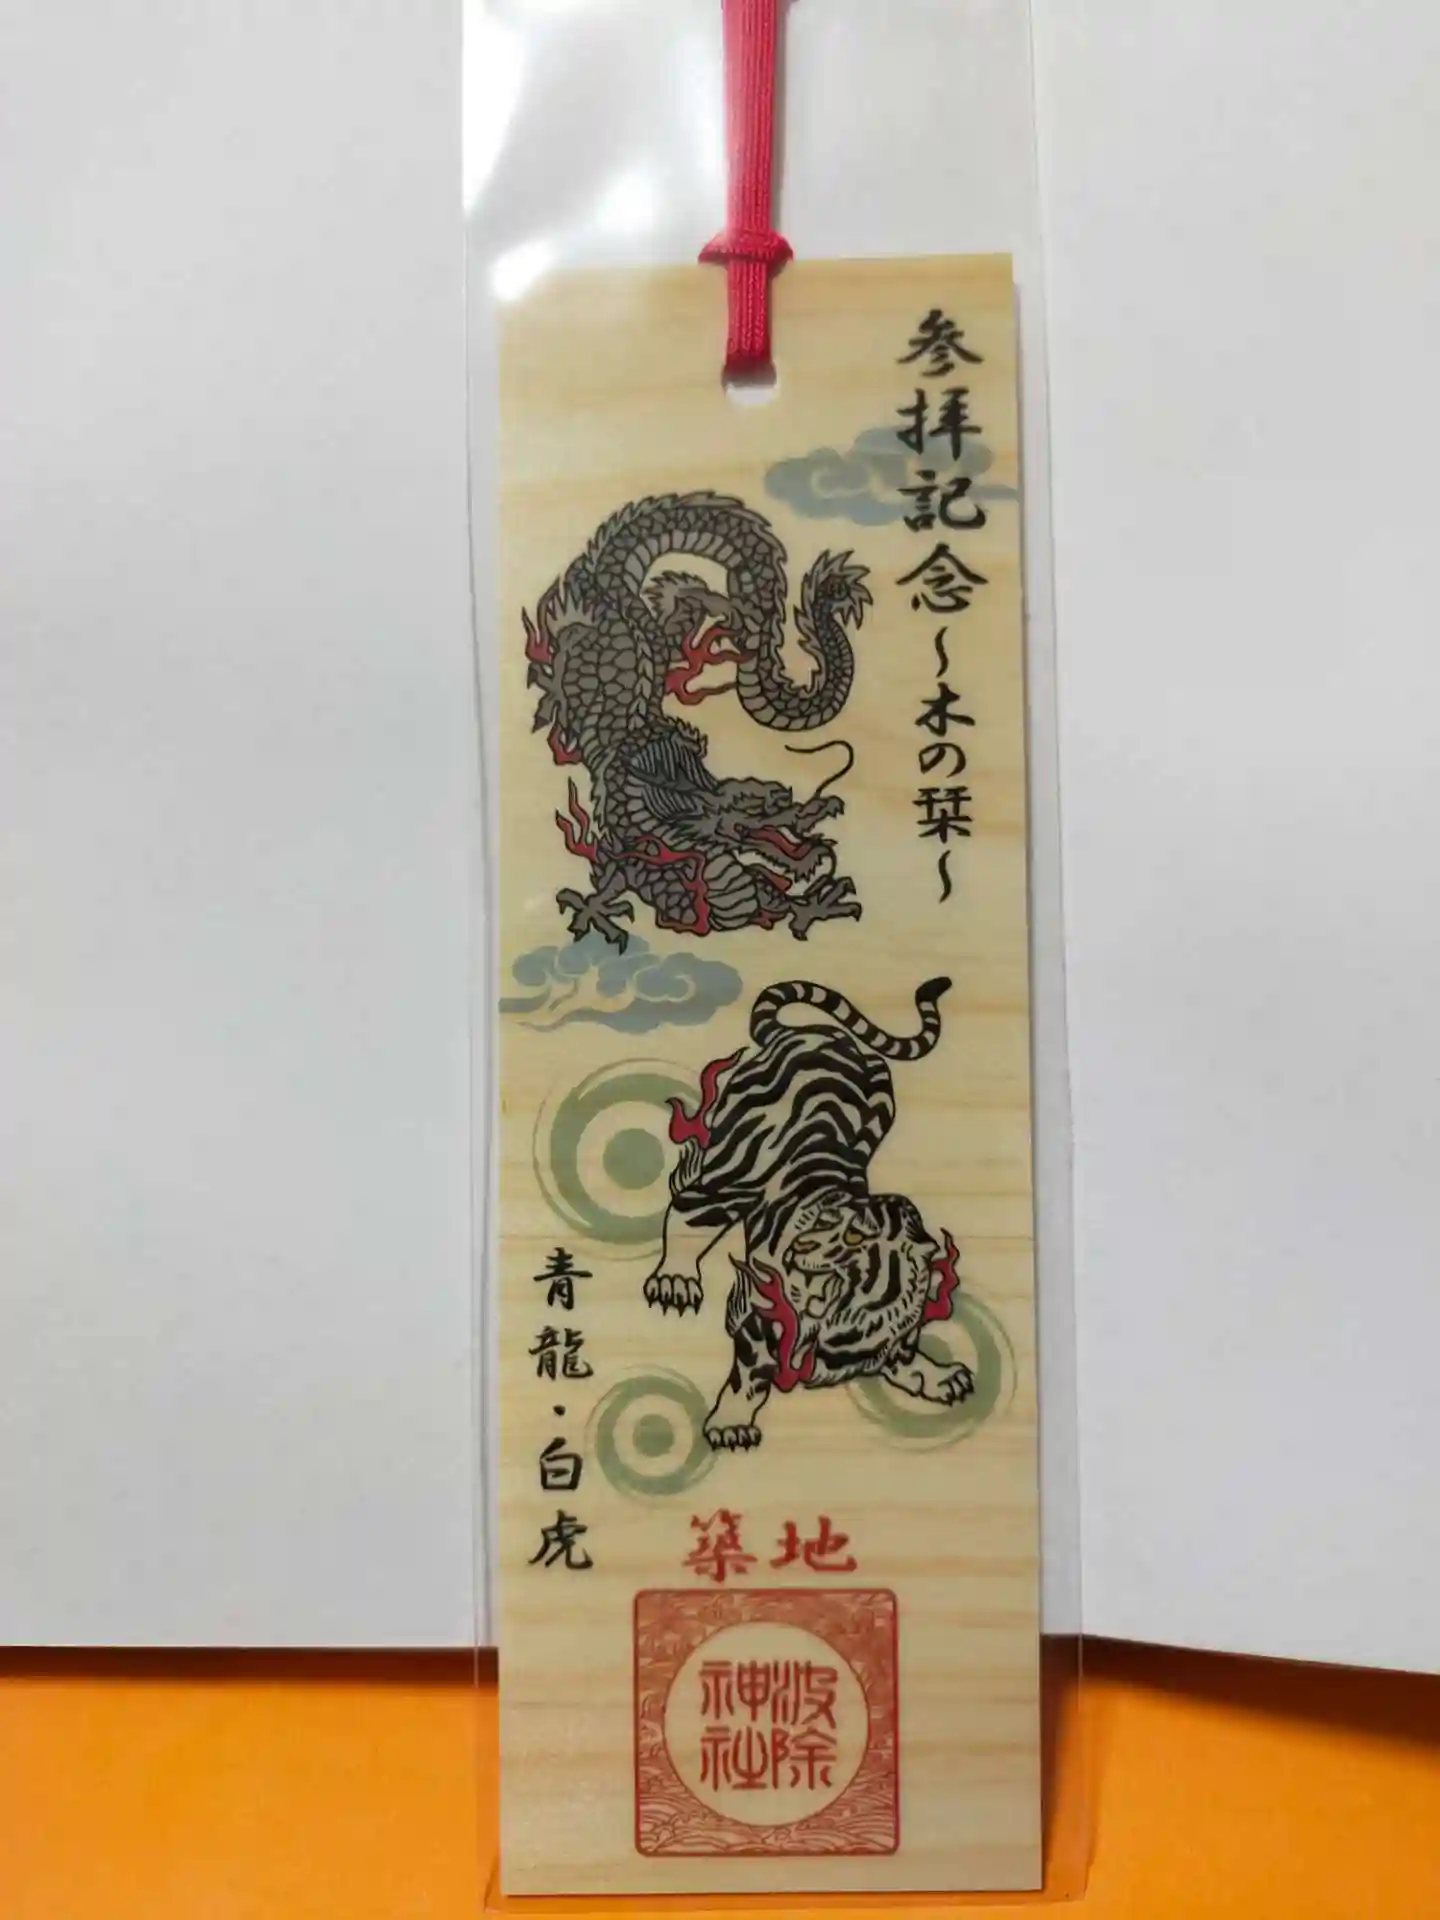 参拝記念~木の栞~
青龍・白虎
築地
波除
神社